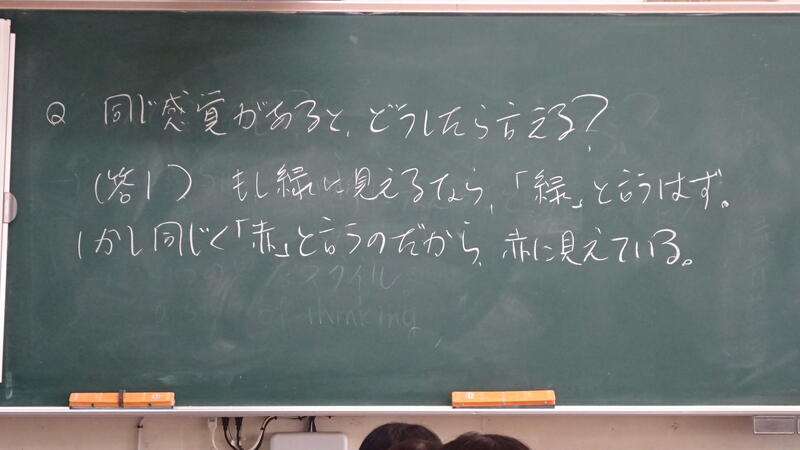 Q 同じ感覚があると、どうしたら言える?
(答1) もし緑に見えるなら、「緑」と言うはず。
しかし同じく「赤」と言うのだから、赤に見えている。
スタイル
a style of thinking